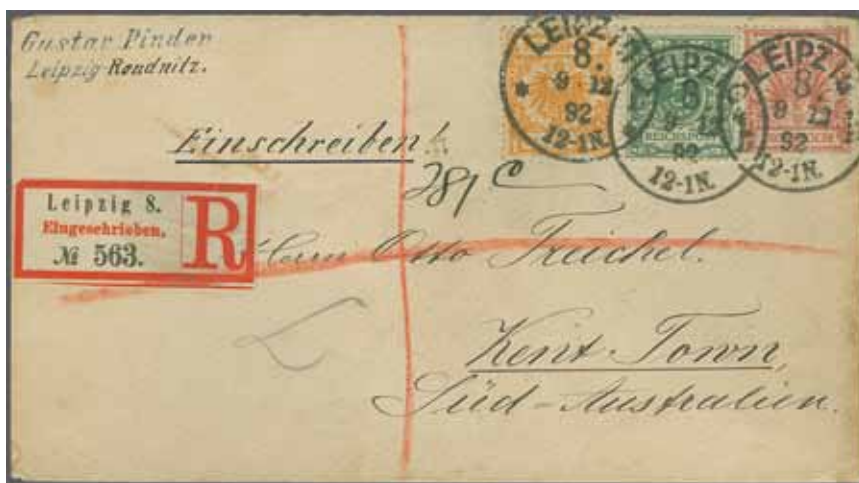 Gustav Pinder
Leipzig-Reudnitz.
LEIPZIG
8.
9 12
92
12-1N.
LEIPZIG
8
9 12
92
12-1N.
REICHSPOST
LEIPZIG
8.
9 12
92
12-1N.
Einschreiben!
281
Leipzig 8.
Eingeschrieben.
№ 563.
R
Herrn Otto Treichel.
Kent Town,
Süd-Australien.